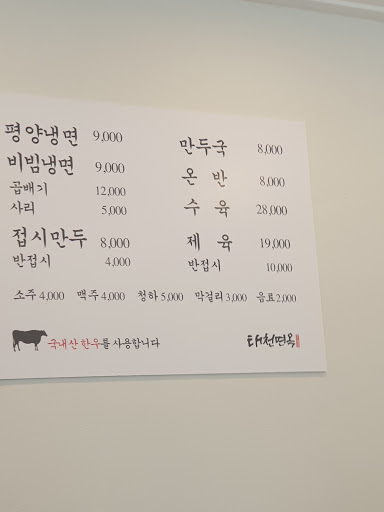 평양냉면 9,000
비빔냉면 9,000
곱배기 12,000
사리 5,000
접시만두 8,000
반접시 4,000
만두국 8,000
온 반 8,000
수 육 28,000
제 육 19,000
반접시 10,000
소주 4,000 맥주 4,000 청하 5,000 막걸리 3,000 음료 2,000
국내산 한우를 사용합니다
태천면옥